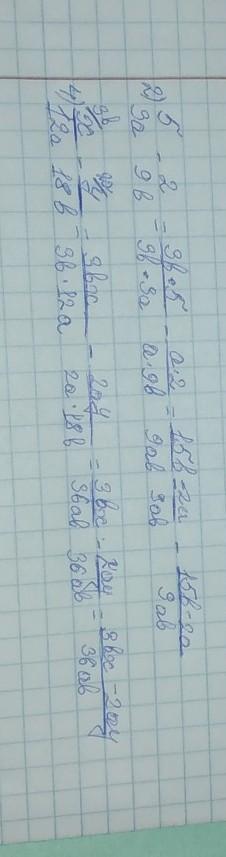 2) 5/3a - 2/9b = 3b·5/3b·3a - a·2/a·9b = 15b/9ab - 2a/9ab = 15b-2a/9ab
4) 3b x/12a - 2a y/18b = 3bx/3b·12a - 2ay/2a·18b = 3bx/36ab - 2ay/36ab = 3bx-2ay/36ab